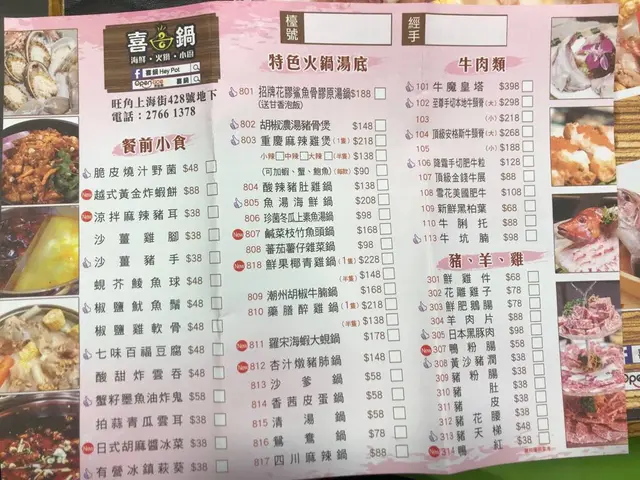 喜鍋
海鮮•火鍋•小廚
喜鍋 Hey Pot
openrice 喜鍋
旺角上海街428號地下
電話：2766 1378
檯號
經手
餐前小食
脆皮燒汁野菌 $48
New 越式黃金炸蝦餅 $88
New 涼拌麻辣豬耳 $38
沙薑雞腳 $38
沙薑豬手 $38
蜆芥鯪魚球 $48
椒鹽魷魚鬚 $48
椒鹽雞軟骨 $48
七味百福豆腐 $48
酸甜炸雲吞 $48
蟹籽墨魚油炸鬼 $58
拍蒜青瓜雲耳 $38
New 日式胡麻醬冰菜 $38
有營冰鎮萩葵 $38
特色火鍋湯底
801 招牌花膠鯊魚骨膠原湯鍋 $188
(送甘香泡飯)
802 胡椒濃湯豬骨煲 $148
803 重慶麻辣雞煲 (1隻) $218
小辣 中辣 大辣 (半隻) $138
(可加蝦、蟹、鮑魚) (每款) $90
804 酸辣豬肚雞鍋 $158
805 魚湯海鮮鍋 $208
806 珍菌冬瓜上素魚湯鍋 $98
New 807 鹹菜枝竹魚頭鍋 $168
808 蕃茄薯仔雜菜鍋 $98
New 818 鮮果椰青雞鍋 (1隻) $228
(半隻) $148
809 潮州胡椒牛腩鍋 $168
810 藥膳醉雞鍋 (1隻) $218
(半隻) $138
New 811 羅宋海蝦大蜆鍋 $178
New 812 杏汁燉豬肺鍋 $148
813 沙爹鍋 $58
814 香茜皮蛋鍋 $58
815 清湯鍋 $58
816 鴛鴦鍋 $78
817 四川麻辣鍋 $88
牛肉類
101 牛魔皇塔 $398
102 至尊手切本地牛頸脊 (大) $298
103 (小) $168
104 頂級安格斯牛頸脊 (大) $218
105 (小) $128
106 降龍手切肥牛粒 $128
107 頂級金錢牛展 $88
108 雪花美國肥牛 $98
109 新鮮黑柏葉 $68
110 牛脷托 $68
113 牛坑腩 $98
豬、羊、雞
301 鮮雞件 $68
302 花雕雞子 $78
303 鮮肥鵝腸 $78
304 羊肉片 $58
305 日本黑豚肉 $98
New 307 鴨粉腸 $58
308 黃沙豬潤 $38
309 豬粉腸 $38
310 豬肚 $38
311 豬皮 $38
312 豬花腰 $48
313 豬天梯 $38
New 314 鴨紅 $38